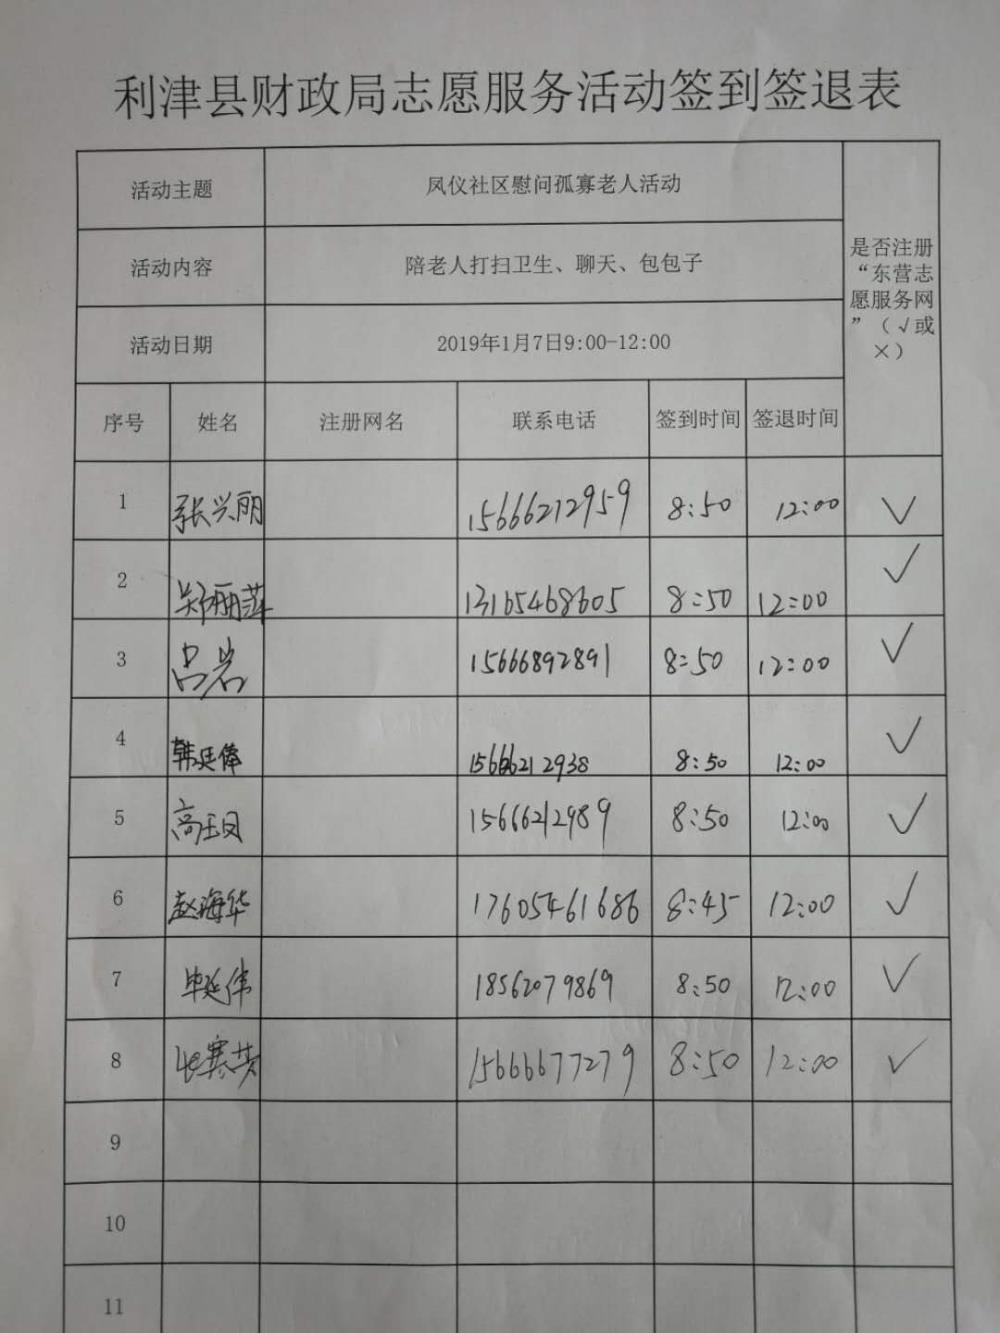 利津县财政局志愿服务活动签到签退表
活动主题 凤仪社区慰问孤寡老人活动
活动内容 陪老人打扫卫生、聊天、包包子
活动日期 2019年1月7日9:00-12:00
是否注册
“东营志
愿服务网
”（√或
×）
序号 姓名 注册网名 联系电话 签到时间 签退时间
1 张兴丽 15666212959 8:50 12:00 √
2 郑丽萍 13165468605 8:50 12:00 √
3 吕岩 15666892891 8:50 12:00 √
4 韩廷俸 15666212938 8:50 12:00 √
5 高玉国 15666212989 8:50 12:00 √
6 赵海华 17605461686 8:45 12:00 √
7 毕延伟 18562079869 8:50 12:00 √
8 张赛英 15666677279 8:50 12:00 √
9
10
11